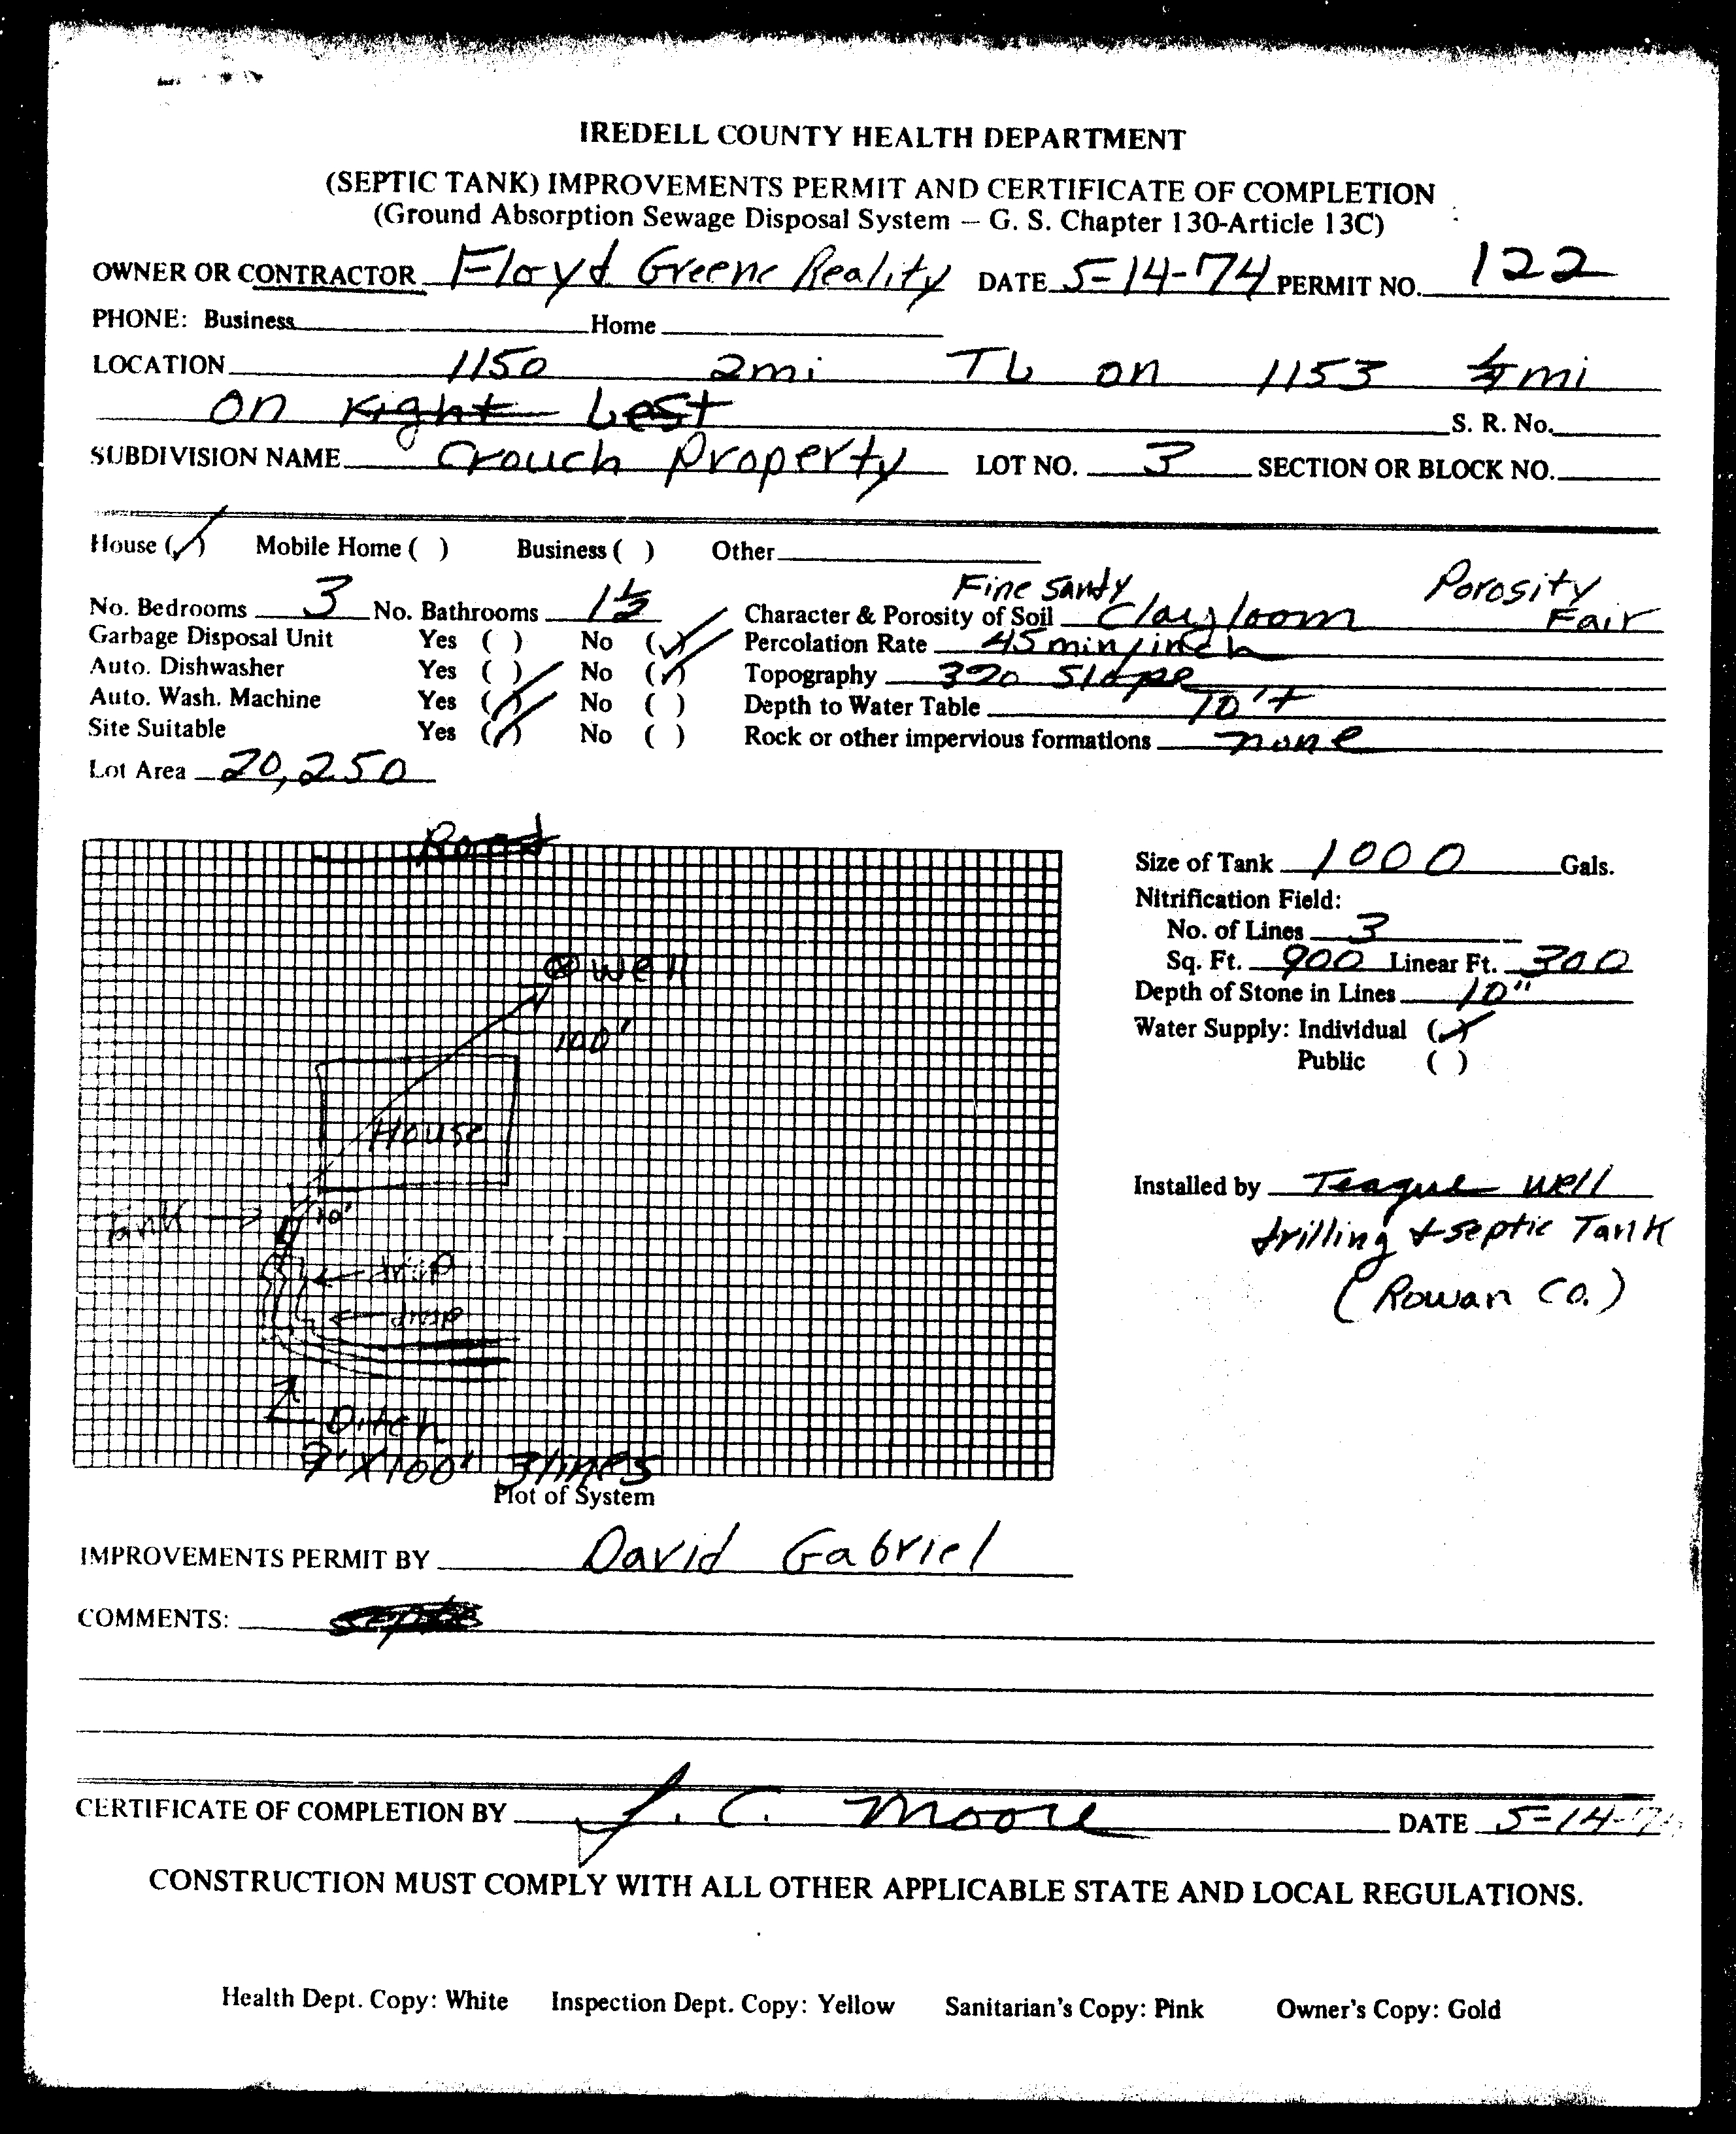 IREDELL COUNTY HEALTH DEPARTMENT
(SEPTIC TANK) IMPROVEMENTS PERMIT AND CERTIFICATE OF COMPLETION
(Ground Absorption Sewage Disposal System – G. S. Chapter 130-Article 13C)
OWNER OR CONTRACTOR Floyd Greene Reality DATE 5-14-74 PERMIT NO. 122
PHONE: Business Home
LOCATION 1150 2mi TL on 1153 mi
on Right Left S. R. No.
SUBDIVISION NAME Crouch Property LOT NO. 3 SECTION OR BLOCK NO.
House (✓) Mobile Home ( ) Business ( ) Other
Fine Sandy Porosity
No. Bedrooms 3 No. Bathrooms 1½ Character & Porosity of Soil Clay loom Fair
Garbage Disposal Unit Yes ( ) No (✓) Percolation Rate 45 min/inch
Auto. Dishwasher Yes ( ) No (✓) Topography 3% Slope
Auto. Wash. Machine Yes (✓) No ( ) Depth to Water Table 10'+
Site Suitable Yes (✓) No ( ) Rock or other impervious formations none
Lot Area 20,250
Road
Size of Tank 1000 Gals.
Nitrification Field:
No. of Lines 3
Sq. Ft. 900 Linear Ft. 300
Depth of Stone in Lines 10"
Water Supply: Individual (✓)
Public ( )
Well
100'
House
Tank
10'
drop
drop
Ditch
3'X100' 3 lines
Plot of System
Installed by Teague Well
drilling + septic Tank
(Rowan Co.)
IMPROVEMENTS PERMIT BY David Gabriel
COMMENTS:
CERTIFICATE OF COMPLETION BY J. C. Moore DATE 5-14-74
CONSTRUCTION MUST COMPLY WITH ALL OTHER APPLICABLE STATE AND LOCAL REGULATIONS.
Health Dept. Copy: White Inspection Dept. Copy: Yellow Sanitarian's Copy: Pink Owner's Copy: Gold